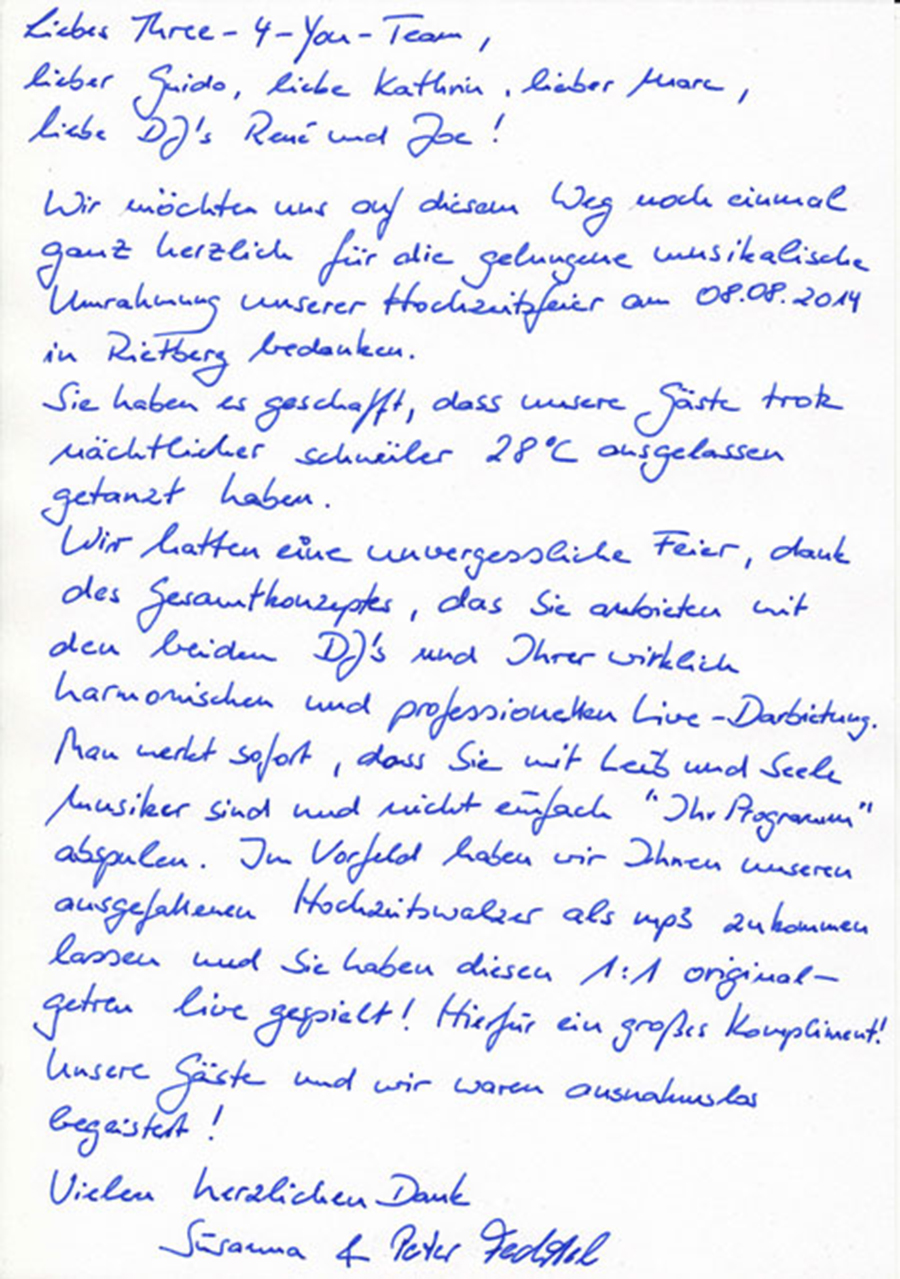 Liebes Three-4-You-Team,
lieber Guido, liebe Kathrin, lieber Marc,
liebe DJ's René und Joe!
Wir möchten uns auf diesem Weg noch einmal
ganz herzlich für die gelungene musikalische
Umrahmung unserer Hochzeitsfeier am 08.08.2014
in Rietberg bedanken.
Sie haben es geschafft, dass unsere Gäste trotz
nächtlicher schwüler 28°C ausgelassen
getanzt haben.
Wir hatten eine unvergessliche Feier, dank
des Gesamtkonzeptes, das Sie anbieten mit
den beiden DJ's und Ihrer wirklich
harmonischen und professionellen Live-Darbietung.
Man merkt sofort, dass Sie mit Leib und Seele
Musiker sind und nicht einfach "Ihr Programm"
abspulen. Im Vorfeld haben wir Ihnen unseren
ausgefallenen Hochzeitswalzer als mp3 zukommen
lassen und Sie haben diesen 1:1 original-
getreu live gespielt! Hierfür ein großes Kompliment!
Unsere Gäste und wir waren ausnahmslos
begeistert!
Vielen herzlichen Dank
Susanna & Peter